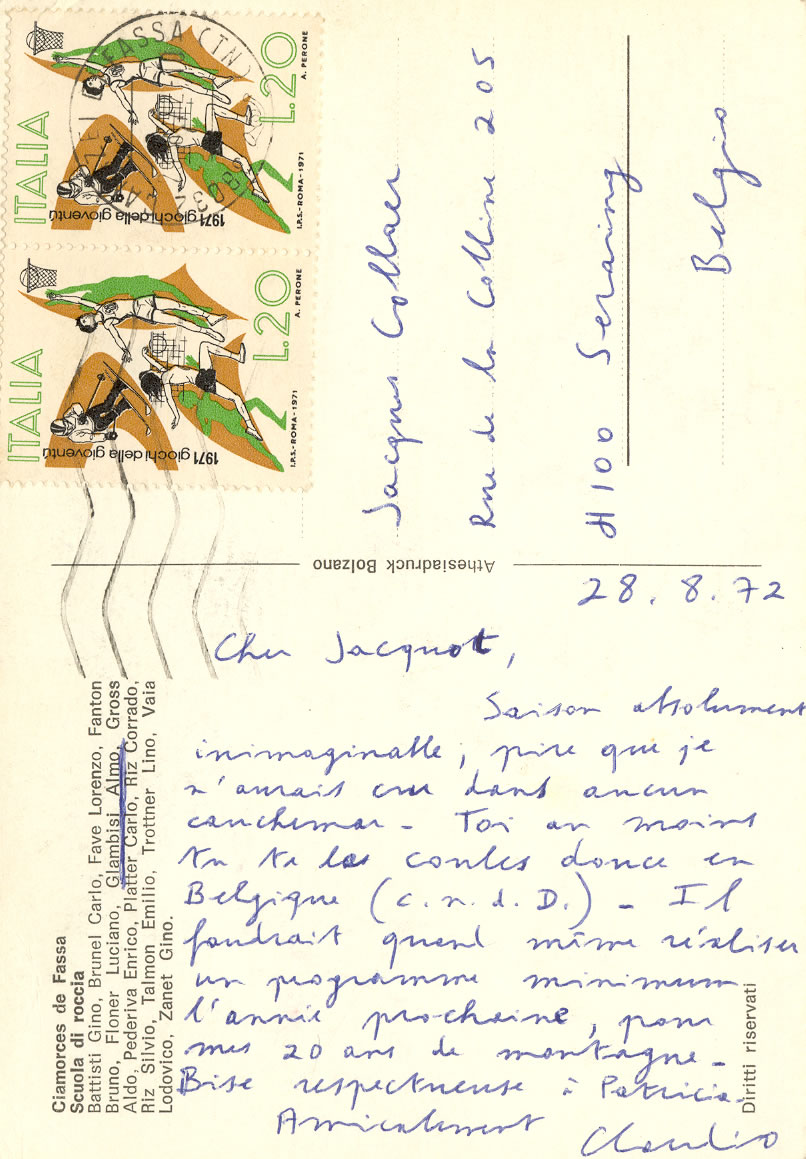 ITALIA
L.20
A. PERONE
1971 giochi della gioventù
I.P.S.-ROMA-1971
FASSA (TN)
ITALIA
L.20
A. PERONE
1971 giochi della gioventù
I.P.S.-ROMA-1971
Jacques Collaer
Rue de la Colline 205
4100 Seraing
Belgio
Athesiadruck Bolzano
28.8.72
Cher Jacquot,
Saison absolument
inimaginable, pire que je
n'aurais cru dans aucun
cauchemar - Toi au moins
tu te les coules douce en
Belgique (c.n.d.D.) - Il
faudrait quand même réaliser
un programme minimum
l'année prochaine, pour
mes 20 ans de montagne -
Bise respectueuse à Patricia.
Amicalement
Claudio
Ciamorces de Fassa
Scuola di roccia
Battisti Gino, Brunel Carlo, Fave Lorenzo, Fanton
Bruno, Floner Luciano, Glambisi Almo, Gross
Aldo, Pederiva Enrico, Platter Carlo, Riz Corrado,
Riz Silvio, Talmon Emilio, Trottner Lino, Vaia
Lodovico, Zanet Gino.
Diritti riservati